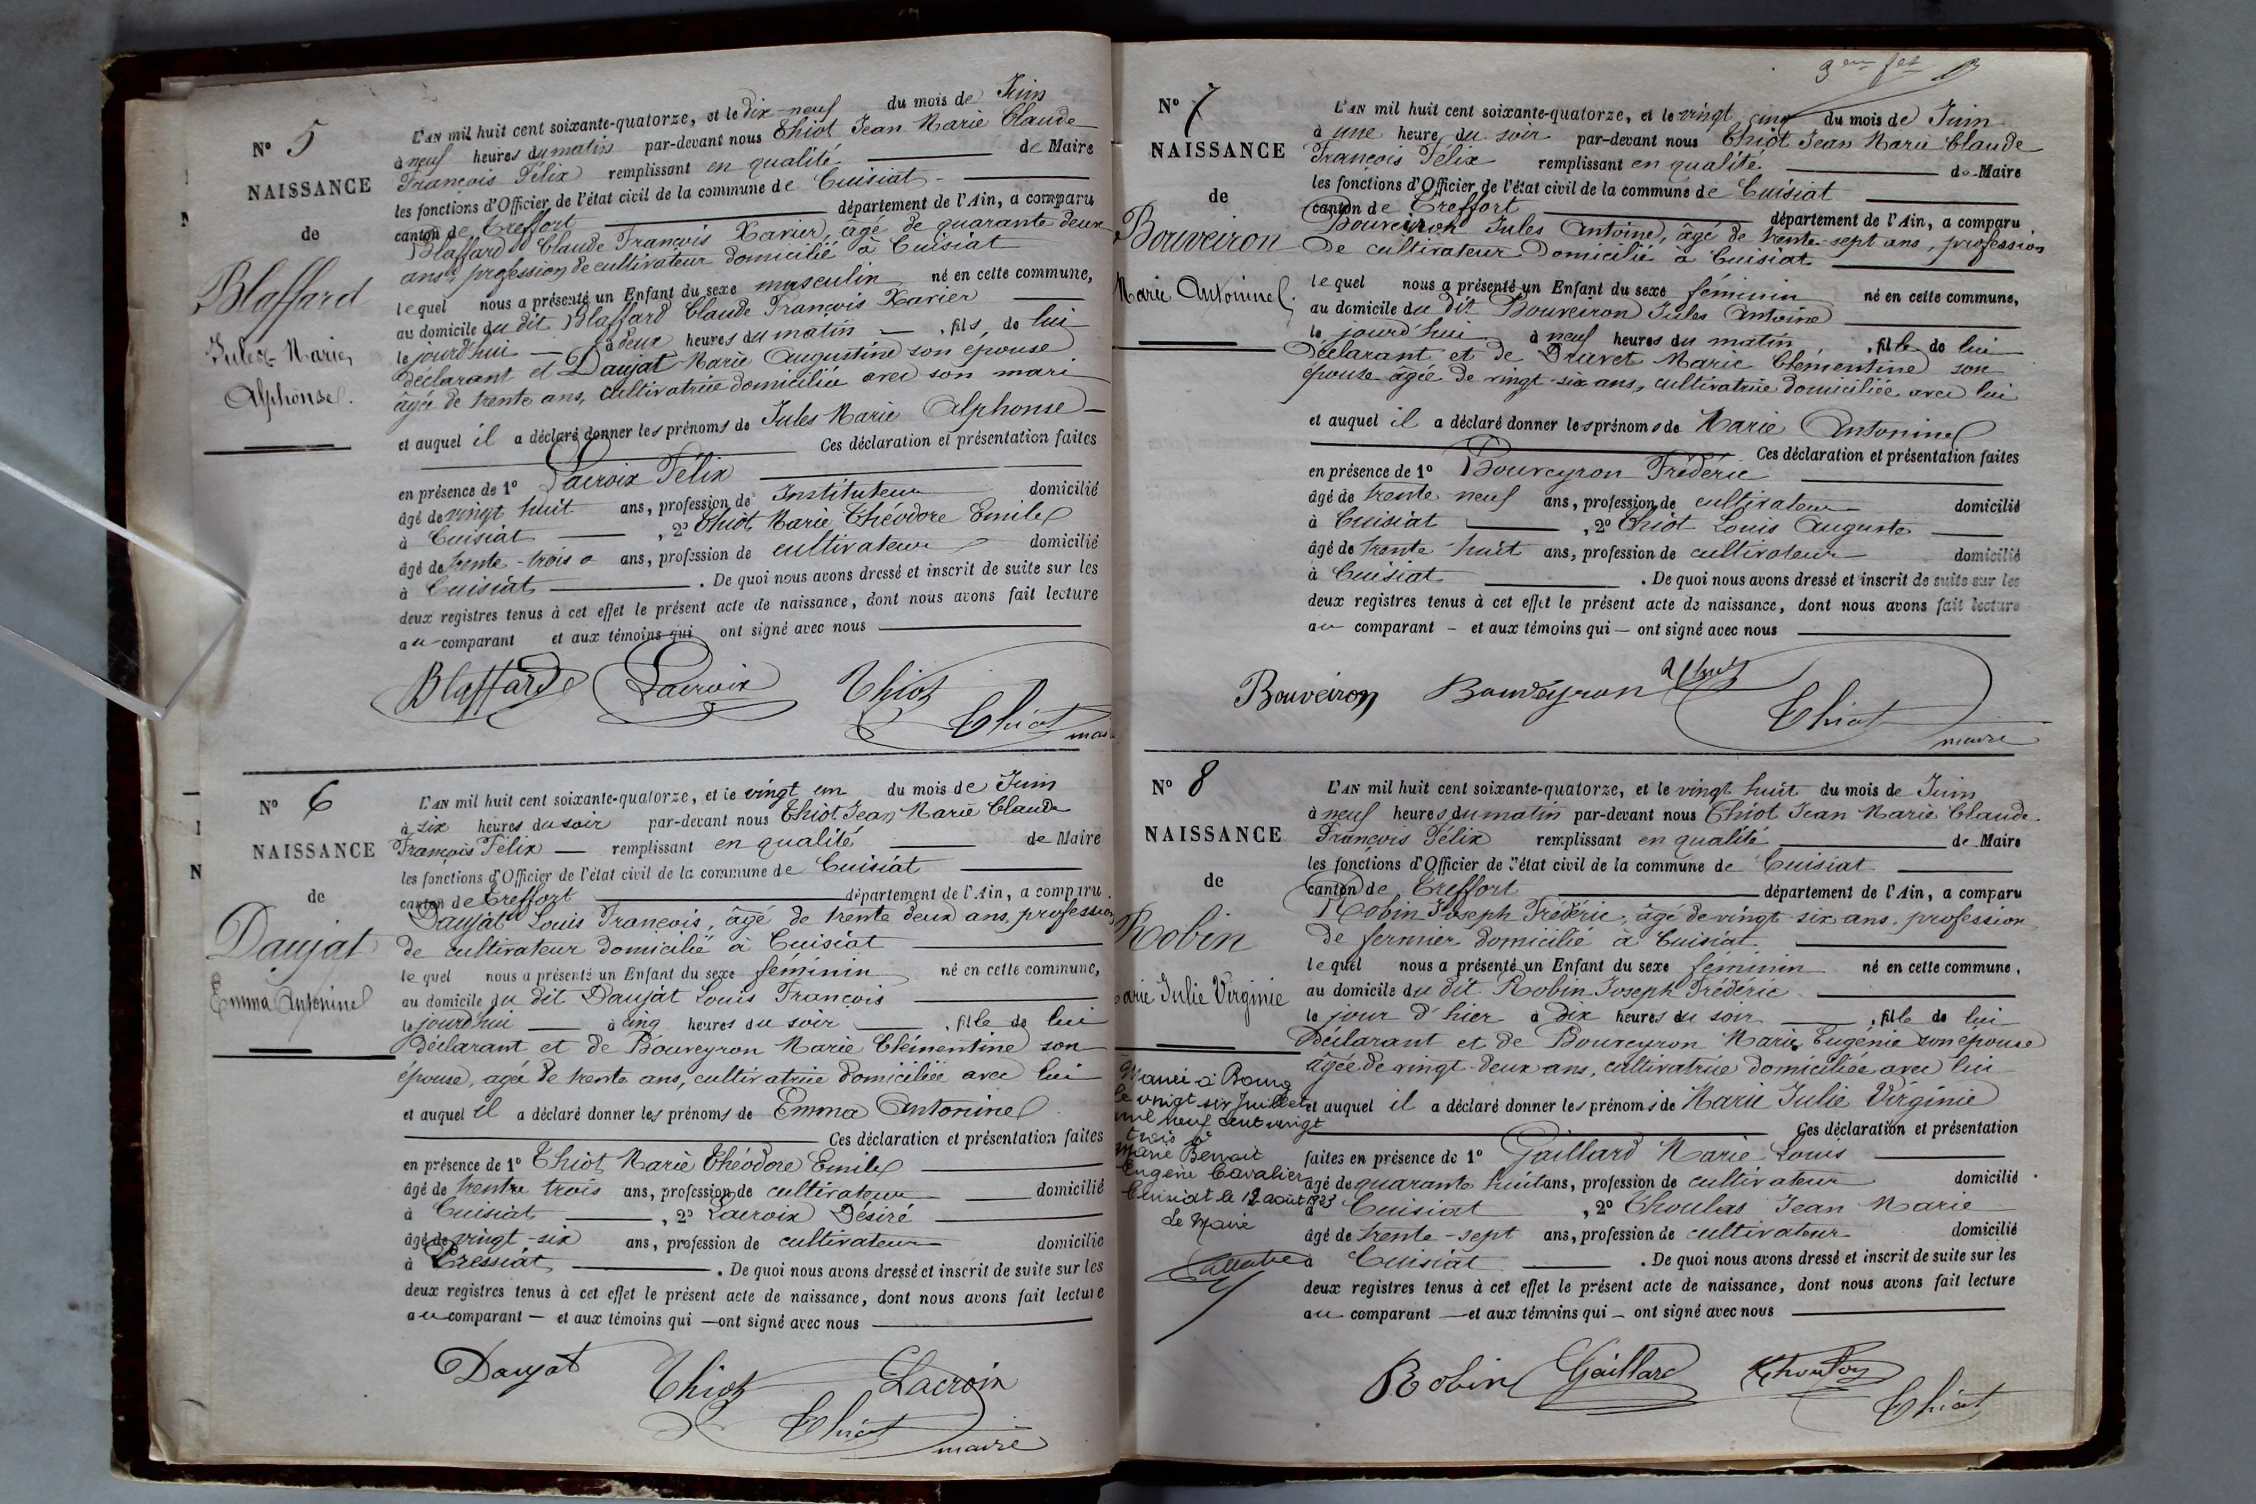 N° 5
NAISSANCE
de
Blaffard
Jules Marie
Alphonse.
L'AN mil huit cent soixante-quatorze, et le dix-neuf du mois de Juin
à neuf heures du matin par-devant nous Thiot Jean Marie Claude
François Félix remplissant en qualité de Maire
les fonctions d'Officier de l'état civil de la commune de Cuisiat
canton de Treffort département de l'Ain, a comparu
Blaffard Claude François Xavier, âgé de quarante deux
ans, profession de cultivateur domicilié à Cuisiat
lequel nous a présenté un Enfant du sexe masculin né en cette commune,
au domicile du dit Blaffard Claude François Xavier
le jourd'hui à deux heures du matin, fils, de lui
déclarant et Daujat Marie Augustine son épouse
âgée de trente ans, cultivatrice domiciliée avec son mari
et auquel il a déclaré donner les prénoms de Jules Marie Alphonse
Ces déclaration et présentation faites
en présence de 1° Lacroix Félix
âgé de vingt huit ans, profession de Instituteur domicilié
à Cuisiat, 2° Thiot Marie Théodore Emile
âgé de trente-trois ans, profession de cultivateur domicilié
à Cuisiat. De quoi nous avons dressé et inscrit de suite sur les
deux registres tenus à cet effet le présent acte de naissance, dont nous avons fait lecture
au comparant et aux témoins qui ont signé avec nous
Blaffard Lacroix Thiot
Thiot
N° 6
NAISSANCE
de
Daujat
Emma Antonine
L'AN mil huit cent soixante-quatorze, et le vingt un du mois de Juin
à six heures du soir par-devant nous Thiot Jean Marie Claude
François Félix — remplissant en qualité de Maire
les fonctions d'Officier de l'état civil de la commune de Cuisiat
canton de Treffort département de l'Ain, a comparu
Daujat Louis François, âgé de trente deux ans, profession
de cultivateur domicilié à Cuisiat
lequel nous a présenté un Enfant du sexe féminin né en cette commune,
au domicile du dit Daujat Louis François
le jourd'hui à cinq heures du soir, fille de lui
déclarant et de Bouveyron Marie Clémentine son
épouse, agée de trente ans, cultivatrice domiciliée avec lui
et auquel il a déclaré donner les prénoms de Emma Antonine
Ces déclaration et présentation faites
en présence de 1° Thiot Marie Théodore Emile
âgé de trente trois ans, profession de cultivateur domicilié
à Cuisiat, 2° Lacroix Désiré
âgé de vingt-six ans, profession de cultivateur domicilié
à Pressiat. De quoi nous avons dressé et inscrit de suite sur les
deux registres tenus à cet effet le présent acte de naissance, dont nous avons fait lecture
au comparant — et aux témoins qui — ont signé avec nous
Daujat Thiot Lacroix
Thiot maire
N° 7
NAISSANCE
de
Bouveiron
Marie Antonine.
L'AN mil huit cent soixante-quatorze, et le vingt cinq du mois de Juin
à une heure du soir par-devant nous Thiot Jean Marie Claude
François Félix remplissant en qualité de Maire
les fonctions d'Officier de l'état civil de la commune de Cuisiat
canton de Treffort département de l'Ain, a comparu
Bouveiron Jules Antoine, âgé de trente-sept ans, profession
de cultivateur domicilié à Cuisiat
lequel nous a présenté un Enfant du sexe féminin né en cette commune,
au domicile du dit Bouveiron Jules Antoine
le jourd'hui à neuf heures du matin, fille de lui
déclarant et de Dravet Marie Clémentine son
épouse âgée de vingt-six ans, cultivatrice domiciliée avec lui
et auquel il a déclaré donner les prénoms de Marie Antonine
Ces déclaration et présentation faites
en présence de 1° Bouveyron Fréderic
âgé de trente neuf ans, profession de cultivateur domicilié
à Cuisiat, 2° Thiot Louis Auguste
âgé de trente-huit ans, profession de cultivateur domicilié
à Cuisiat. De quoi nous avons dressé et inscrit de suite sur les
deux registres tenus à cet effet le présent acte de naissance, dont nous avons fait lecture
au comparant — et aux témoins qui — ont signé avec nous
Bouveiron Bouveyron Thiot
Thiot
maire
N° 8
NAISSANCE
de
Robin
Marie Julie Virginie
L'AN mil huit cent soixante-quatorze, et le vingt huit du mois de Juin
à neuf heures du matin par-devant nous Thiot Jean Marie Claude
François Félix remplissant en qualité de Maire
les fonctions d'Officier de l'état civil de la commune de Cuisiat
canton de Treffort département de l'Ain, a comparu
Robin Joseph Frédéric, âgé de vingt-six ans, profession
de fermier domicilié à Cuisiat
lequel nous a présenté un Enfant du sexe féminin né en cette commune,
au domicile du dit Robin Joseph Frédéric
le jour d'hier à dix heures du soir, fille de lui
Déclarant et de Bouveyron Marie Eugénie son épouse
âgée de vingt-deux ans, cultivatrice domiciliée avec lui
et auquel il a déclaré donner les prénoms de Marie Julie Virginie
Ces déclaration et présentation
faites en présence de 1° Gaillard Marie Louis
âgé de quarante huit ans, profession de cultivateur domicilié
à Cuisiat, 2° Choulas Jean Marie
âgé de trente-sept ans, profession de cultivateur domicilié
à Cuisiat. De quoi nous avons dressé et inscrit de suite sur les
deux registres tenus à cet effet le présent acte de naissance, dont nous avons fait lecture
au comparant — et aux témoins qui — ont signé avec nous
Robin Gaillard
Thiot
Mariée à Bourg
le vingt six Juillet
mil neuf cent vingt
trois à
Marie Benoit
Eugène Cavalier
Cuisiat le 12 août 1923
Le Maire